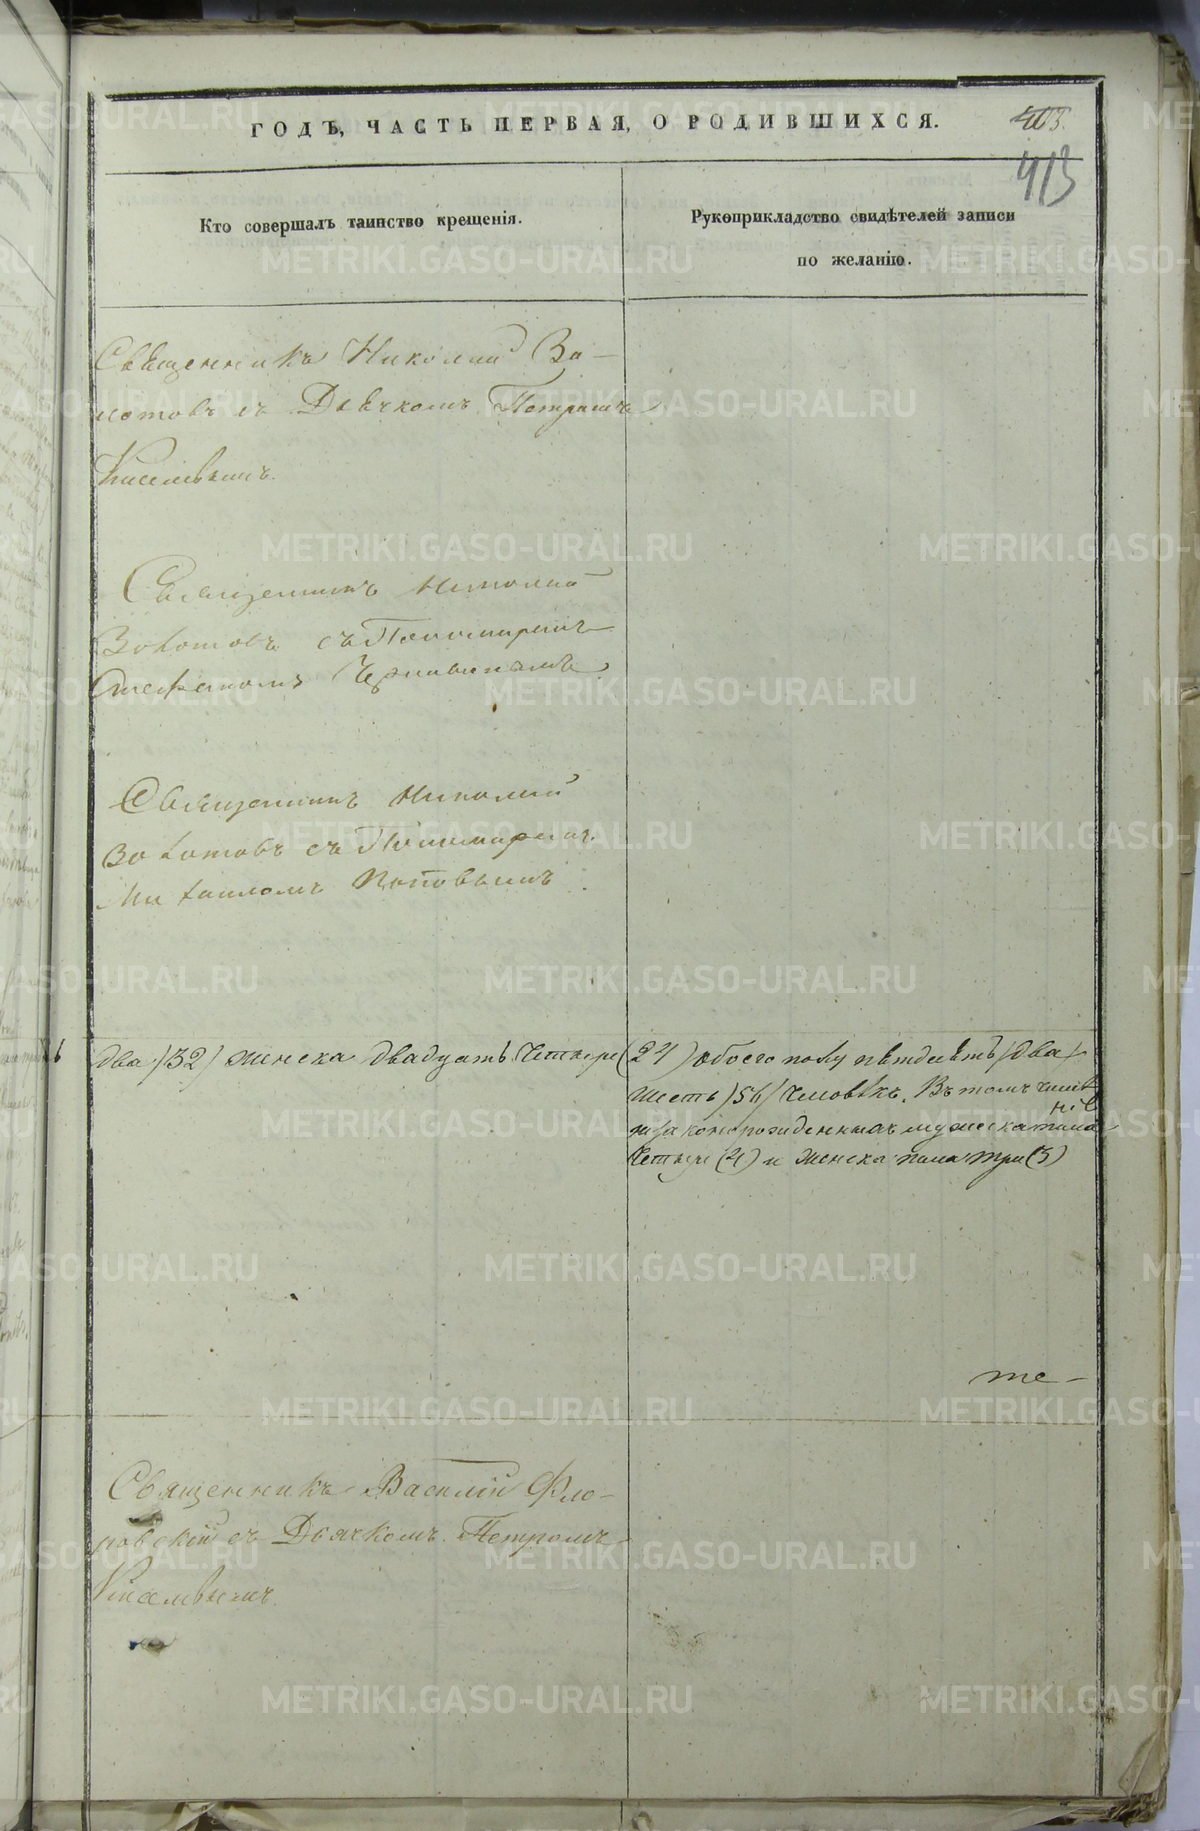 ГОДЪ, ЧАСТЬ ПЕРВАЯ, О РОДИВШИХСЯ.
403.
413
Кто совершалъ таинство крещенія.
Рукоприкладство свидѣтелей записи
по желанію.
Священникъ Николай Во-
лотовъ съ Дьячкомъ Петромъ
Киселевымъ.
Священникъ Николай
съ Пономаремъ
Стефаномъ
Священникъ Николай
съ Пономаремъ
Михаиломъ Поповымъ
два /32/ женска двадцать четыре (24) обоего полу пятдесятъ
шесть /56/ человѣкъ. Въ томъ числѣ
незаконорожденныхъ мужеска пола
четыре (4) и женска пола три (3)
те-
Священникъ Василій Фло-
ровскій съ Дьячкомъ Петромъ
Киселевымъ.
METRIKI.GASO-URAL.RU